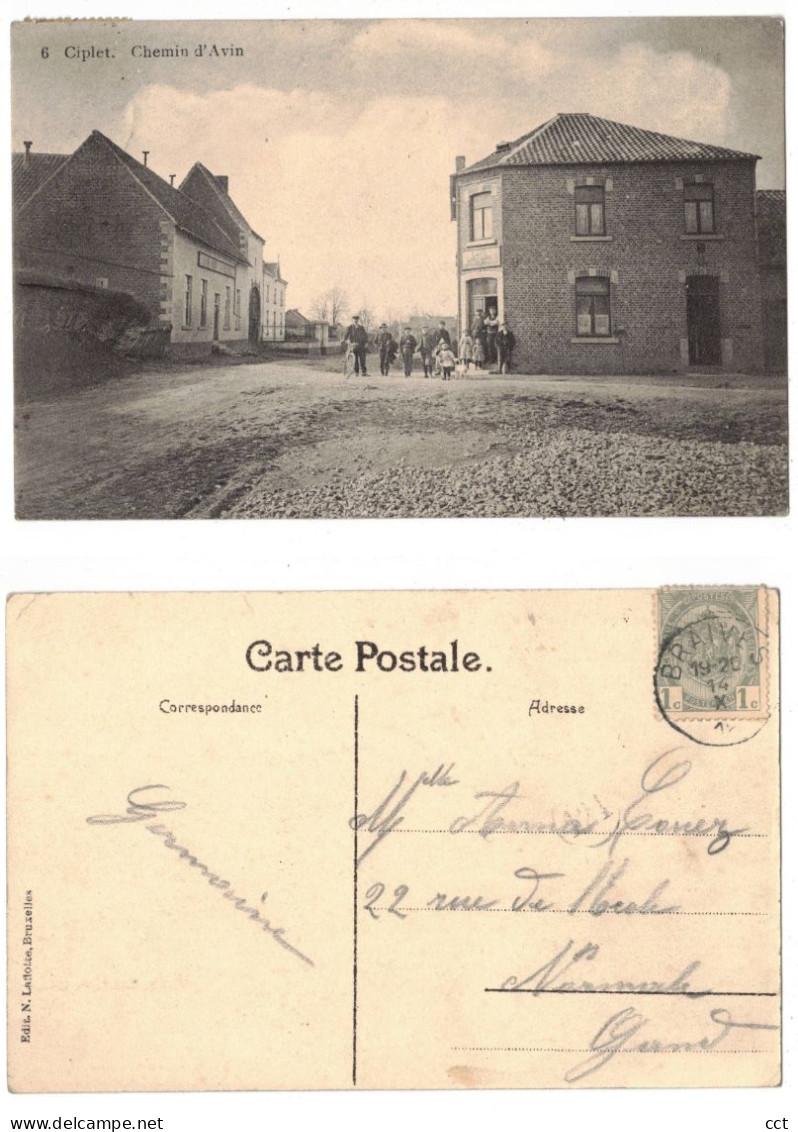 6 Ciplet. Chemin d'Avin
Carte Postale.
Correspondance
Adresse
BRAIVES
19-20
14
X
1c 1c
POSTES
Germaine
Mlle
22 rue de
Normale
Gand
Edit. N. Laflotte, Bruxelles
www.delcampe.net
cct